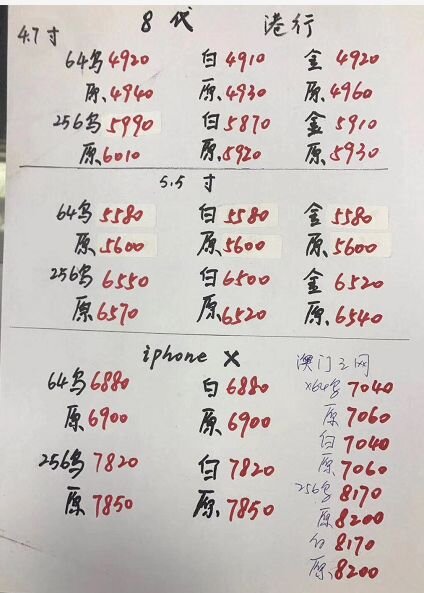 8代 港行
4.7寸
64乌4920 白4910 金4920
原.4940 原.4930 原.4960
256乌5990 白5870 金5910
原.6010 原.5920 原.5930
5.5寸
64乌5580 白5580 金5580
原5600 原5600 原5600
256乌6550 白6500 金6520
原6570 原.6520 原.6540
iphone X
64乌6880 白6880
原6900 原6900
256乌7820 白7820
原7850 原.7850
澳门三网
X64乌7040
原7060
白7040
原7060
256乌8170
原8200
白8170
原.8200